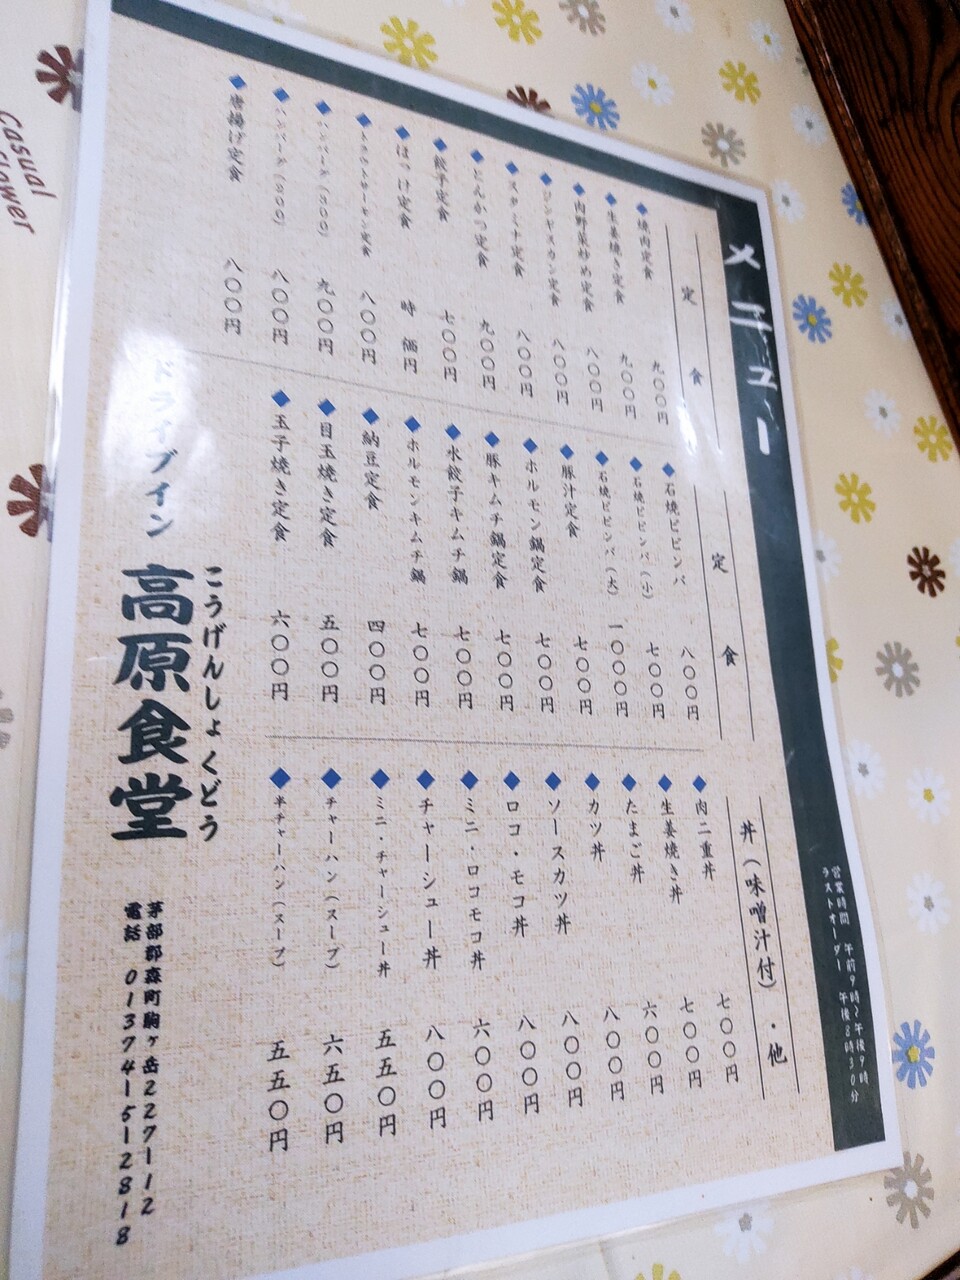 メニュー
営業時間 午前9時~午後9時
ラストオーダー 午後8時30分
定食
焼肉定食 九〇〇円
生姜焼き定食 九〇〇円
肉野菜炒め定食 八〇〇円
ジンギスカン定食 八〇〇円
スタミナ定食 八〇〇円
とんかつ定食 九〇〇円
餃子定食 七〇〇円
ほっけ定食 時価円
トラウトサーモン定食 八〇〇円
ハンバーグ(300) 九〇〇円
ハンバーグ(200) 八〇〇円
唐揚げ定食 八〇〇円
定食
石焼ビビンバ 八〇〇円
石焼ビビンバ(小) 七〇〇円
石焼ビビンバ(大) 一〇〇〇円
豚汁定食 七〇〇円
ホルモン鍋定食 七〇〇円
豚キムチ鍋定食 七〇〇円
水餃子キムチ鍋 七〇〇円
ホルモンキムチ鍋 七〇〇円
納豆定食 四〇〇円
目玉焼き定食 五〇〇円
玉子焼き定食 六〇〇円
丼(味噌汁付)・他
肉二重丼 七〇〇円
生姜焼き丼 七〇〇円
たまご丼 六〇〇円
カツ丼 八〇〇円
ソースカツ丼 八〇〇円
ロコ・モコ丼 八〇〇円
ミニ・ロコモコ丼 六〇〇円
チャーシュー丼 八〇〇円
ミニ・チャーシュー丼 五五〇円
チャーハン(スープ) 六五〇円
半チャーハン(スープ) 五五〇円
こうげんしょくどう
ドライブイン 高原食堂
茅部郡森町駒ヶ岳227-12
電話 01374-5-2818
Casual
Flower